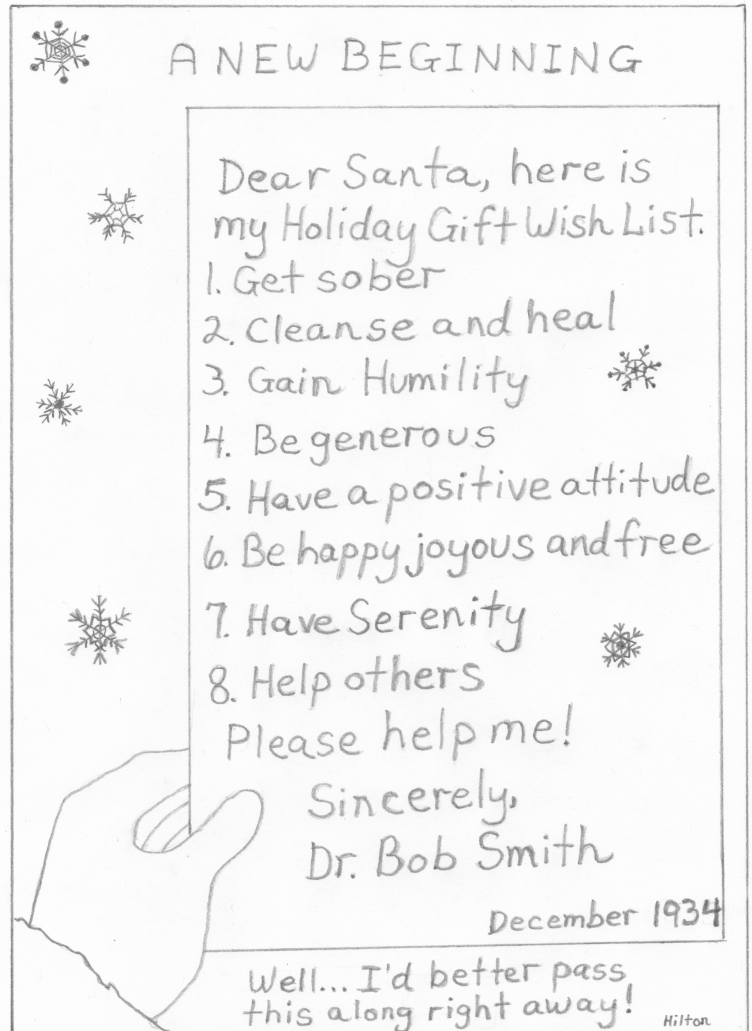 A NEW BEGINNING
Dear Santa, here is
my Holiday Gift Wish List.
1. Get sober
2. Cleanse and heal
3. Gain Humility
4. Be generous
5. Have a positive attitude
6. Be happy joyous and free
7. Have Serenity
8. Help others
Please help me!
Sincerely,
Dr. Bob Smith
December 1934
Well... I'd better pass
this along right away!
Hilton